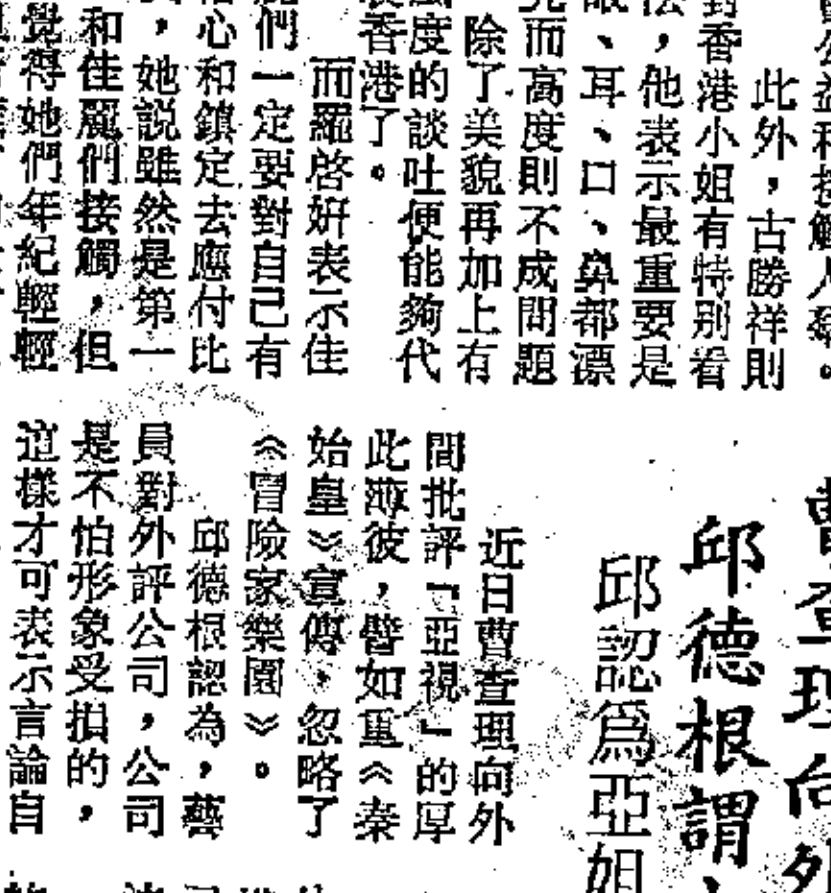 此外，古勝祥則
對香港小姐有特別看
法，他表示最重要是
眼、耳、口、鼻都漂
而高度則不成問題
除了美貌再加上有
度的談吐便能夠代
香港了。
而羅啓妍表示佳
們一定要對自己有
心和鎮定去應付比
，她説雖然是第一
和佳麗們接觸，但
覺得她們年紀輕輕
曹查理向外
邱德根謂
邱認爲亞姐
近日曹查理向外
間批評「亞視」的厚
此薄彼，譬如重《秦
始皇》宣傳，忽略了
《冒險家樂園》。
邱德根認為，藝
員對外評公司，公司
是不怕形象受損的，
這樣才可表示言論自